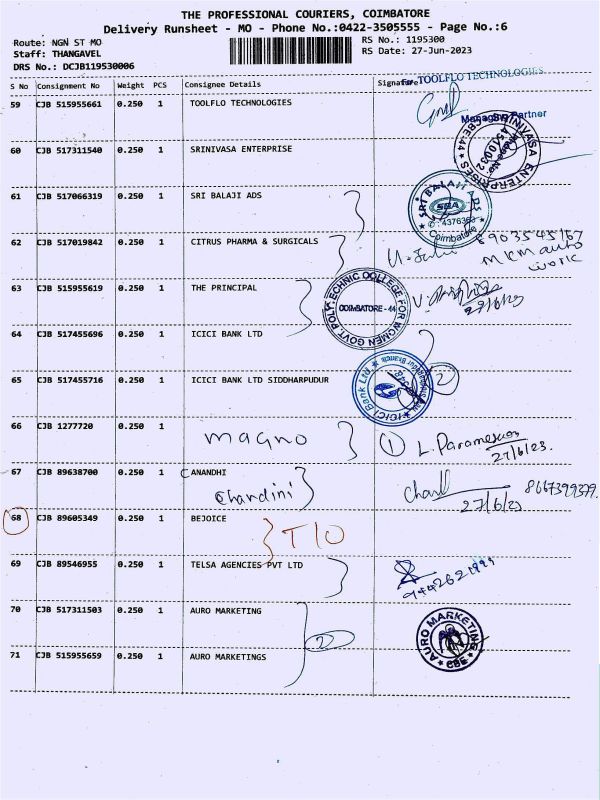 THE PROFESSIONAL COURIERS, COIMBATORE
Delivery Runsheet - MO - Phone No.:0422-3505555 - Page No.:6
Route: NGN ST MO RS No.: 1195300
Staff: THANGAVEL RS Date: 27-Jun-2023
DRS No.: DCJB119530006
S No Consignment No Weight PCS Consignee Details Signature For TOOLFLO TECHNOLOGIES
59 CJB 515955661 0.250 1 TOOLFLO TECHNOLOGIES
Managing Partner
60 CJB 517311540 0.250 1 SRINIVASA ENTERPRISE
SRINIVASA ENTERPRISES
61 CJB 517066319 0.250 1 SRI BALAJI ADS
SRI BALAJI ADS
SBA
Coimbatore
62 CJB 517019842 0.250 1 CITRUS PHARMA & SURGICALS
8903545167
MKM auto
work
63 CJB 515955619 0.250 1 THE PRINCIPAL
GOVT POLYTECHNIC COLLEGE FOR WOMEN
COIMBATORE - 44
27/6/23
64 CJB 517455696 0.250 1 ICICI BANK LTD
65 CJB 517455716 0.250 1 ICICI BANK LTD SIDDHARPUDUR
ICICI Bank Ltd
2
66 CJB 1277720 0.250 1
Magno 1
27/6/23.
67 CJB 89638700 0.250 1 CANANDHI
Chandini
27/6/23 8667399379
68 CJB 89605349 0.250 1 BEJOICE
T/O
69 CJB 89546955 1 TELSA AGENCIES PVT LTD
70 CJB 517311503 0.250 1 AURO MARKETING
2
AURO MARKETING
CBE
71 CJB 515955659 0.250 1 AURO MARKETINGS